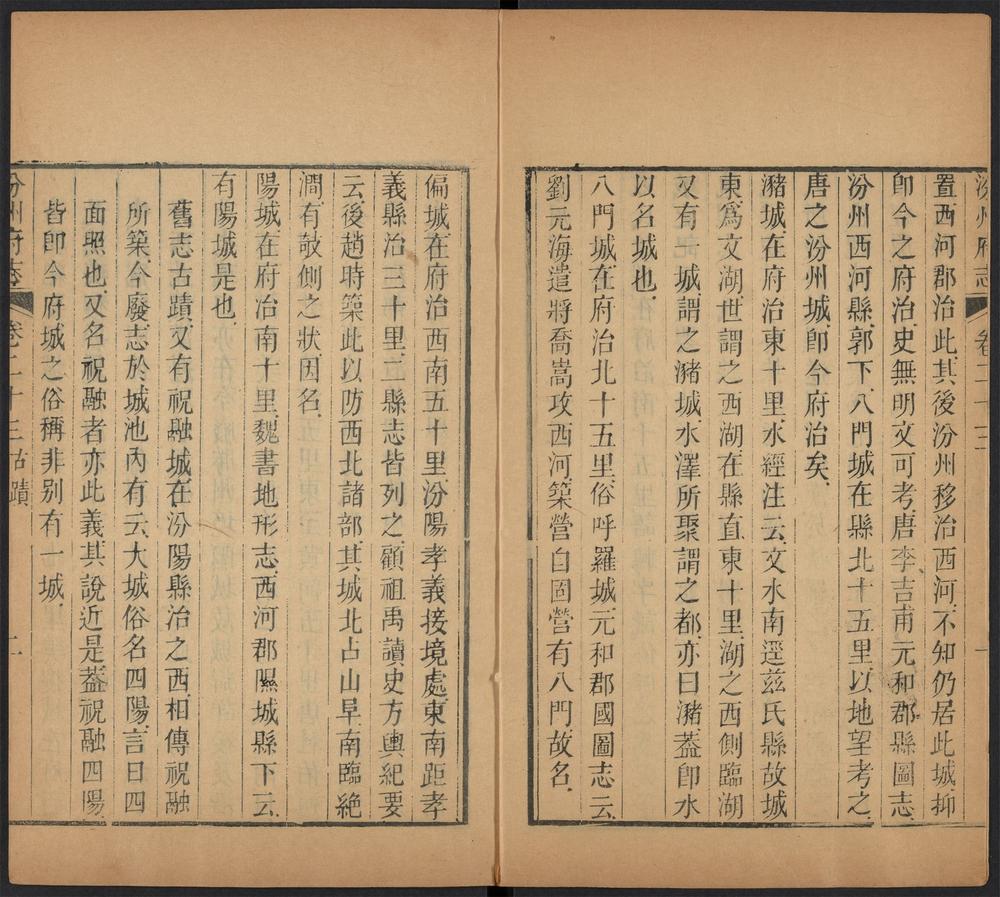 汾州府志
卷二十三
一
置西河郡治此其後汾州移治西河不知仍居此城抑
卽今之府治史無明文可考唐李吉甫元和郡縣圖志
汾州西河縣郭下八門城在縣北十五里以地望考之
唐之汾州城卽今府治矣
瀦城在府治東十里水經注云文水南逕茲氏縣故城
東爲文湖世謂之西湖在縣直東十里湖之西側臨湖
又有一城謂之瀦城水澤所聚謂之都亦曰瀦葢卽水
以名城也
八門城在府治北十五里俗呼羅城元和郡國圖志云
劉元海遣將喬嵩攻西河築營自固營有八門故名
偏城在府治西南五十里汾陽孝義接境處東南距孝
義縣治三十里二縣志皆列之顧祖禹讀史方輿紀要
云後趙時築此以防西北諸部其城北占山阜南臨絶
澗有攲側之狀因名
陽城在府治南十里魏書地形志西河郡隰城縣下云
有陽城是也
舊志古蹟又有祝融城在汾陽縣治之西相傳祝融
所築今廢志於城池內有云大城俗名四陽言日四
面照也又名祝融者亦此義其說近是葢祝融四陽
皆卽今府城之俗稱非别有一城
汾州府志
卷二十三古蹟
二